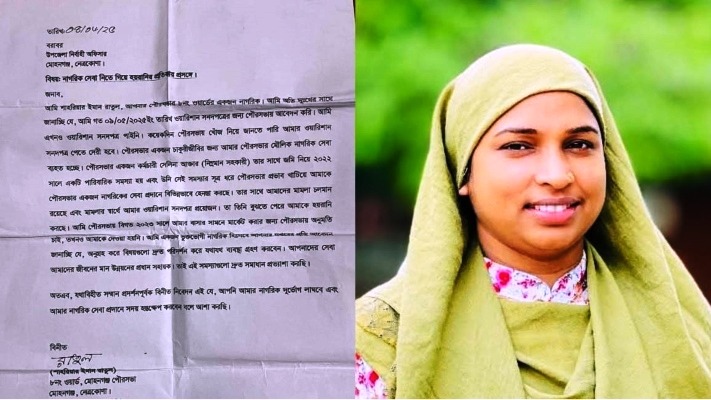 তারিখঃ ০৪/০৮/২৫
বরাবর
উপজেলা নির্বাহী অফিসার
মোহনগঞ্জ, নেত্রকোণা।
বিষয়: নাগরিক সেবা নিতে গিয়ে হয়রানির প্রতিকার প্রসঙ্গে।
জনাব,
আমি শাহরিয়ার ইমান রাতুল, আপনার পৌরসভার ৮নং ওয়ার্ডের একজন নাগরিক। আমি অতি দুঃখের সাথে
জানাচ্ছি যে, আমি গত ০৯/০৫/২০২৫ইং তারিখ ওয়ারিশান সনদপত্রের জন্য পৌরসভায় আবেদন করি। আমি
এখনও ওয়ারিশান সনদপত্র পাইনি। কয়েকদিন পৌরসভায় খোঁজ নিয়ে জানতে পারি আমার ওয়ারিশান
সনদপত্র পেতে দেরী হবে। পৌরসভার একজন চাকুরীজীবির জন্য আমার পৌরসভার মৌলিক নাগরিক সেবা
ব্যহত হচ্ছে। পৌরসভার একজন কর্মচারী সেলিনা আক্তার (নিম্নমান সহকারী) তার সাথে জমি নিয়ে ২০২২
সালে একটি পারিবারিক সমস্যা হয় এবং উনি সেই সমস্যার সূত্র ধরে পৌরসভার প্রভাব খাটিয়ে আমাকে
পৌরসভার একজন নাগরিকের সেবা প্রদানে বিভিন্নভাবে হেনস্তা করছে। তার সাথে আমাদের মামলা চলমান
রয়েছে এবং মামলার স্বার্থে আমার ওয়ারিশান সনদপত্র প্রয়োজন। তা তিনি বুঝতে পেরে আমাকে হয়রানি
করছে। আমি পৌরসভায় বিগত ২০২৩ সালে আমার বাসার সামনে মার্কেট করার জন্য পৌরসভায় অনুমতি
চাই, তখনও আমাকে দেওয়া হয়নি। আমি একজন ভুক্তভোগী নাগরিক হিসেবে আপনার
জানাচ্ছি যে, অনুগ্রহ করে বিষয়গুলো দ্রুত পরিদর্শন করে যথাযথ ব্যবস্থা গ্রহণ করবেন। আপনাদের সেবা
আমাদের জীবনের মান উন্নয়নের প্রধান সহায়ক। তাই এই সমস্যাগুলো দ্রুত সমাধান প্রত্যাশা করছি।
অতএব, যথাবিহীত সম্মান প্রদর্শনপূর্বক বিনীত নিবেদন এই যে, আপনি আমার নাগরিক দুর্ভোগ লাঘবে এবং
আমার নাগরিক সেবা প্রদানে সদয় হস্তক্ষেপ করবেন বলে আশা করছি।
বিনীত
রাতুল
(শাহরিয়ার ইমান রাতুল)
৮নং ওয়ার্ড, মোহনগঞ্জ পৌরসভা
মোহনগঞ্জ, নেত্রকোণা।